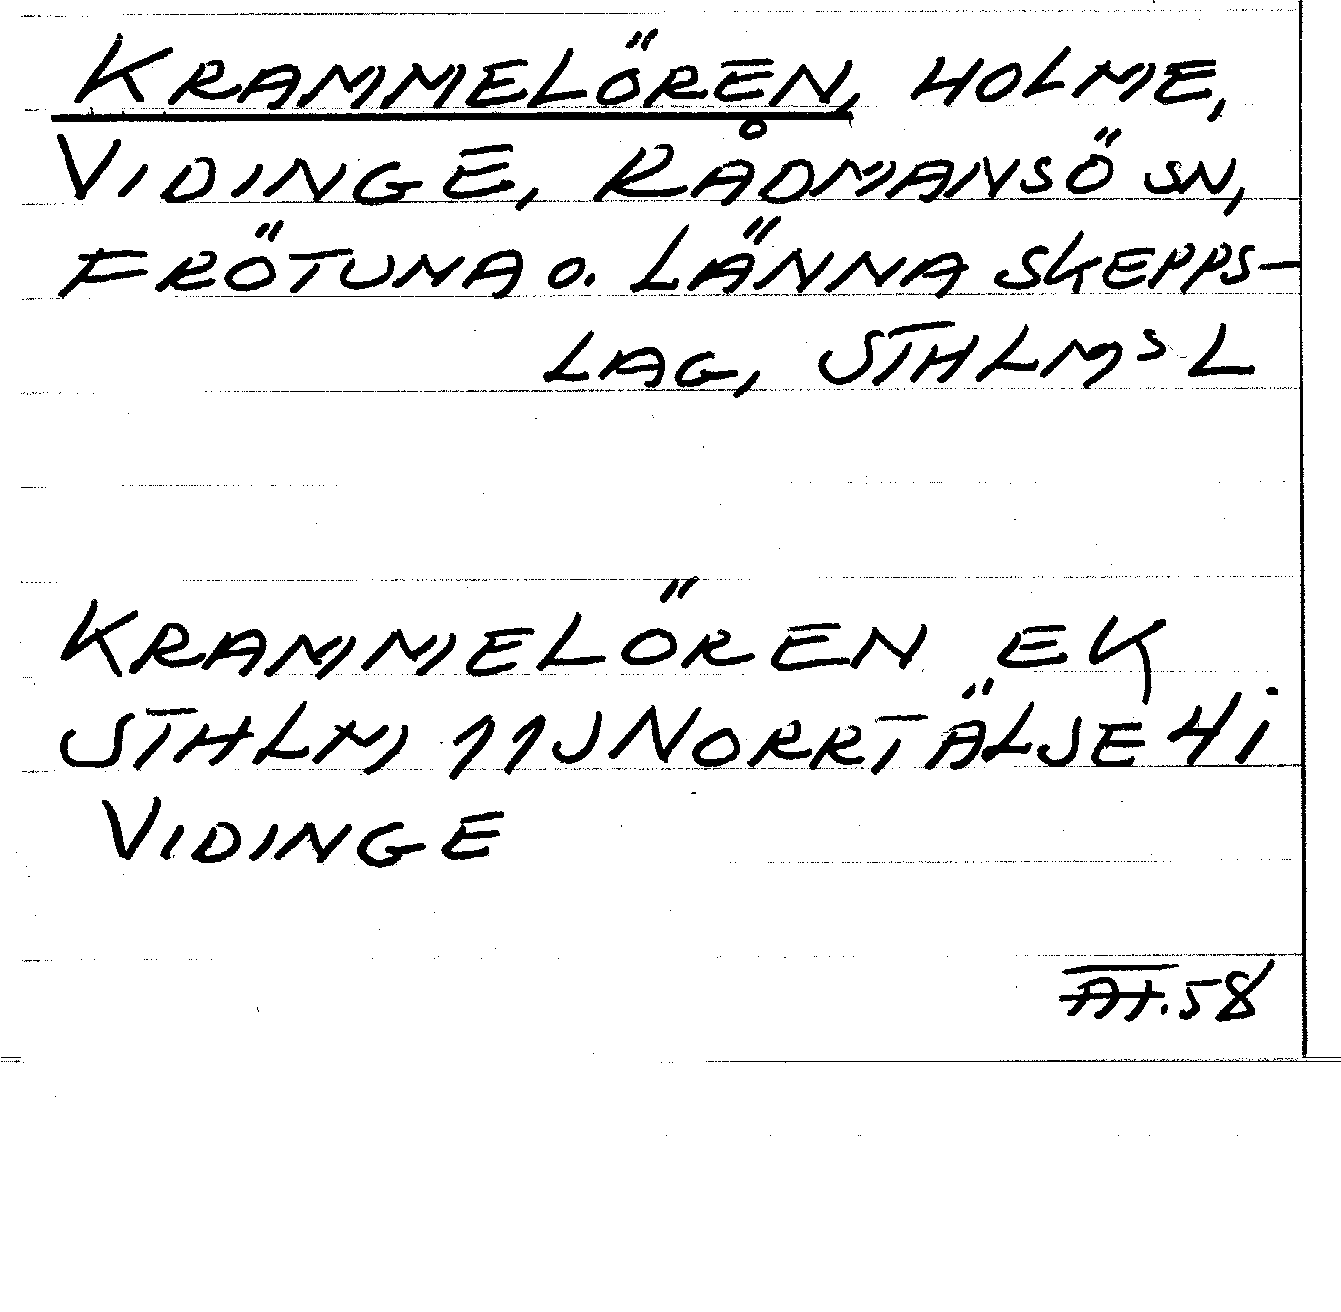 KRAMMELÖREN, HOLME,
VIDINGE, RÅDMANSÖ SN,
FRÖTUNA o. LÄNNA SKEPPS-
LAG, STHLMS L
KRAMMELÖREN EK
STHLM 11J NORRTÄLJE 4i
VIDINGE
58